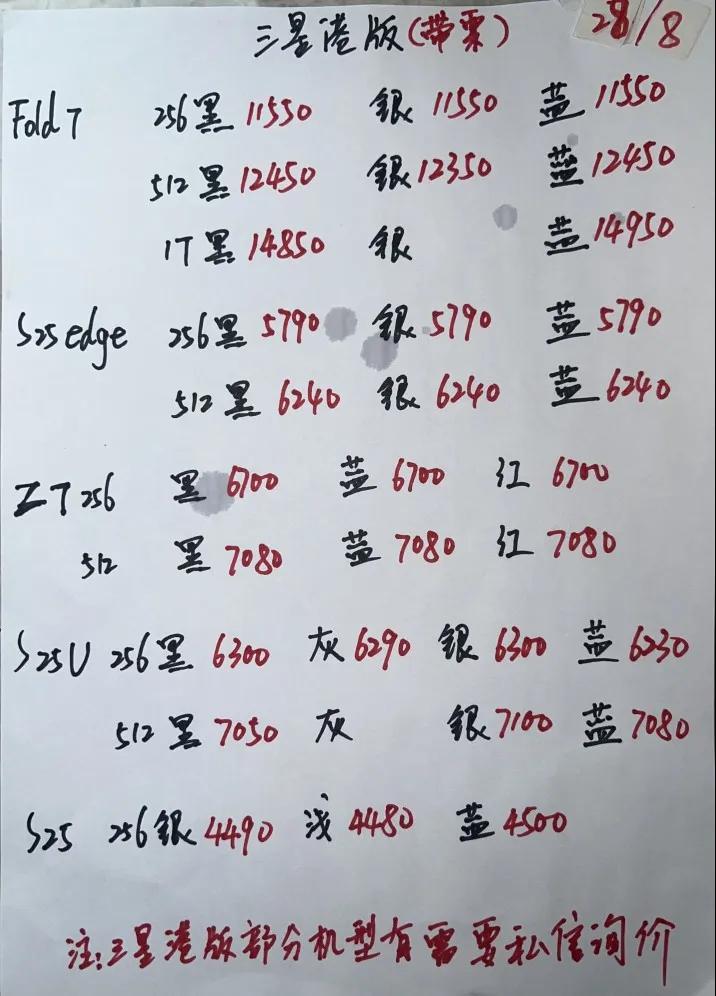 三星港版(带票) 28/8
Fold7 256黑11550 银11550 蓝11550
512黑12450 银12350 蓝12450
1T黑14850 银 蓝14950
S25edge 256黑5790 银5790 蓝5790
512黑6240 银6240 蓝6240
Z7 256 黑6700 蓝6700 红6700
512 黑7080 蓝7080 红7080
S25U 256黑6300 灰6290 银6300 蓝6230
512黑7050 灰 银7100 蓝7080
S25 256银4490 浅4480 蓝4500
注:三星港版部分机型有需要私信询价